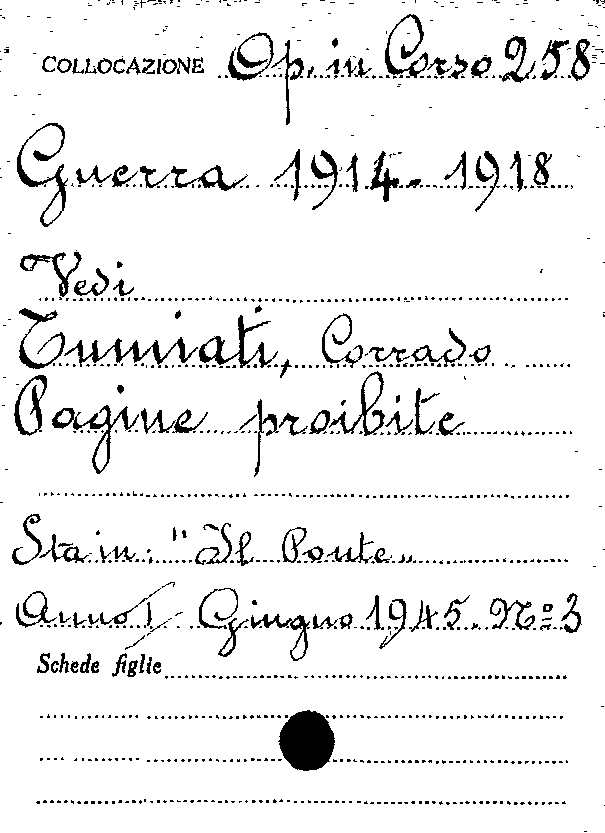 COLLOCAZIONE Op. in Corso 258
Guerra 1914-1918
Vedi
Tumiati, Corrado
Pagine proibite
Sta in: "Il Ponte"
Anno I - Giugno 1945. Nº 3
Schede figlie